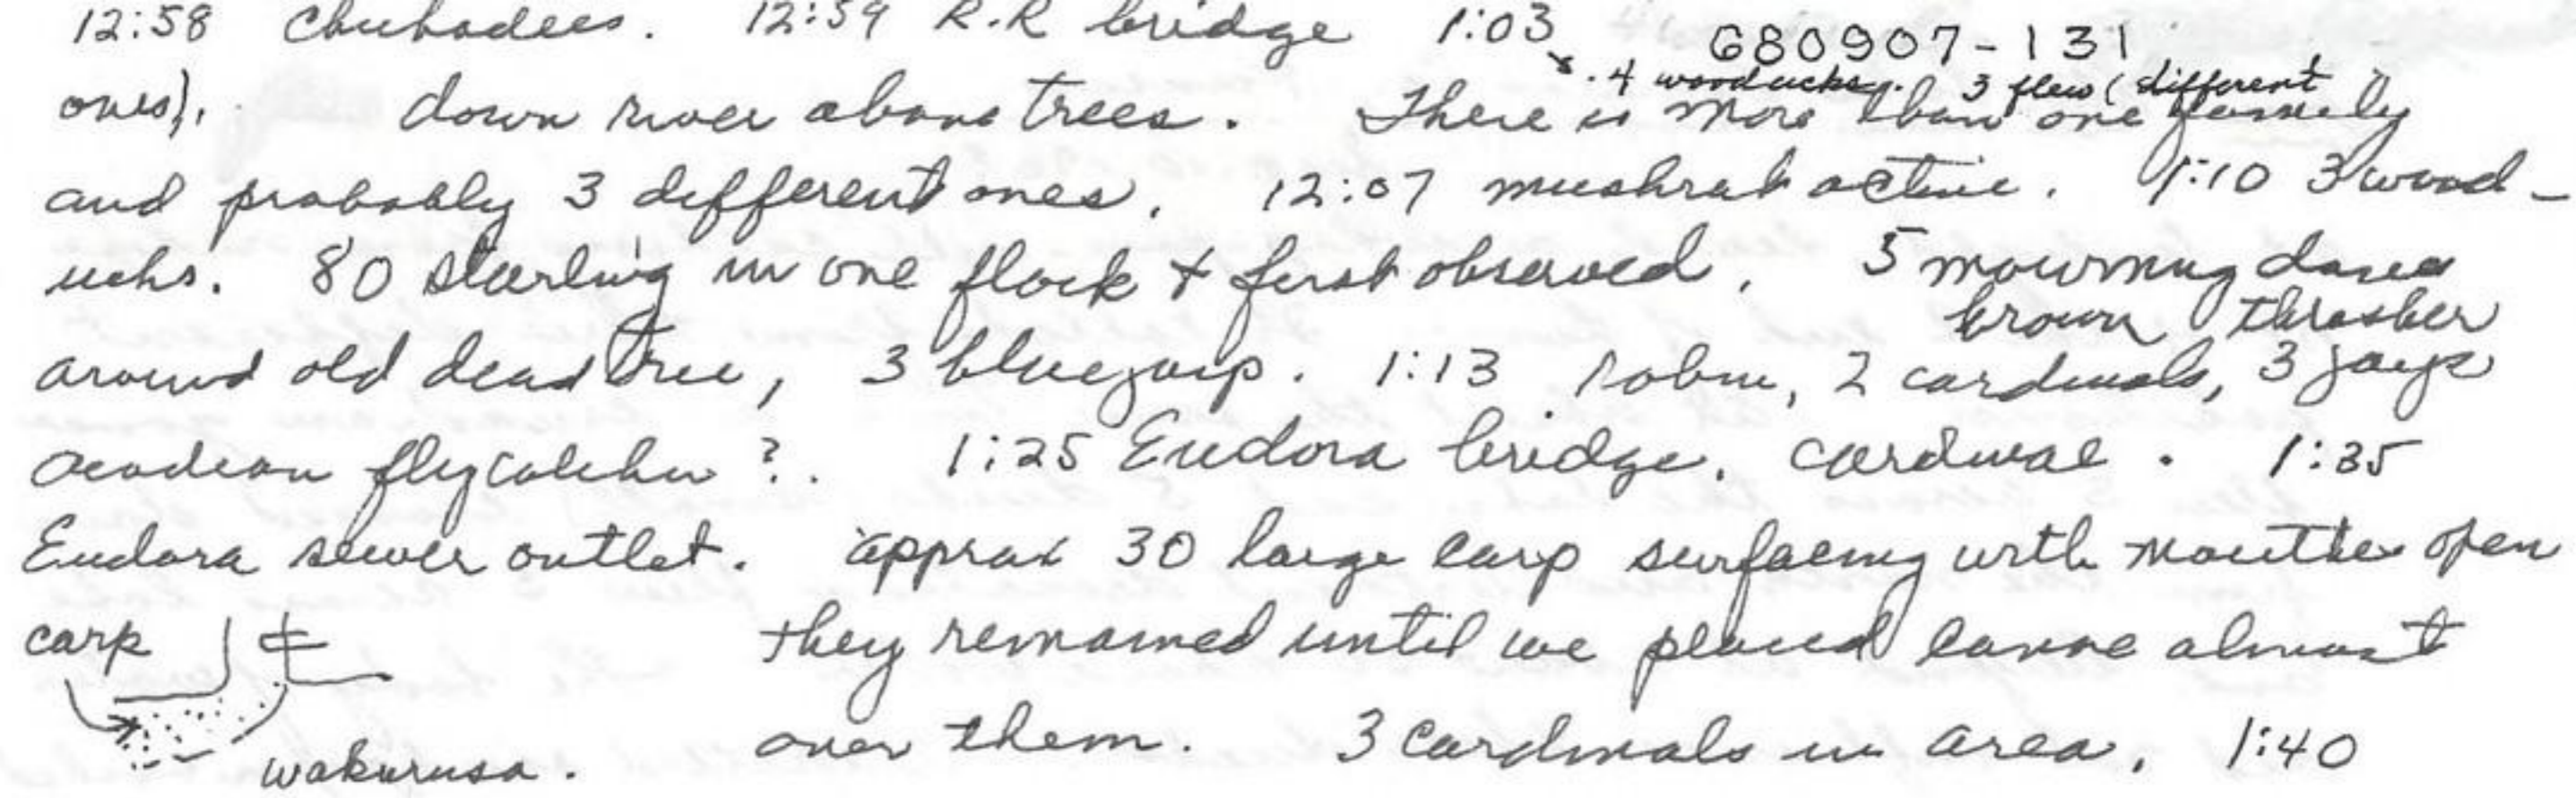 12:58 Chickadees. 12:59 R.R bridge 1:03 680907-131
. 4 woodducks. 3 flew (different
ones). down river above trees. There is more than one family
and probably 3 different ones. 12:07 muskrat active. 1:10 3 wood-
ucks. 80 starling in one flock + first observed. 5 mourning doves
brown thrasher
around old dead tree, 3 bluejays. 1:13 robin, 2 cardinals, 3 jays
acadean flycatcher ?. 1:25 Eudora bridge. cardinal. 1:35
Eudora sewer outlet. approx 30 large carp surfacing with mouths open
carp they remained until we placed canoe almost
over them. 3 cardinals in area. 1:40
wakurusa.